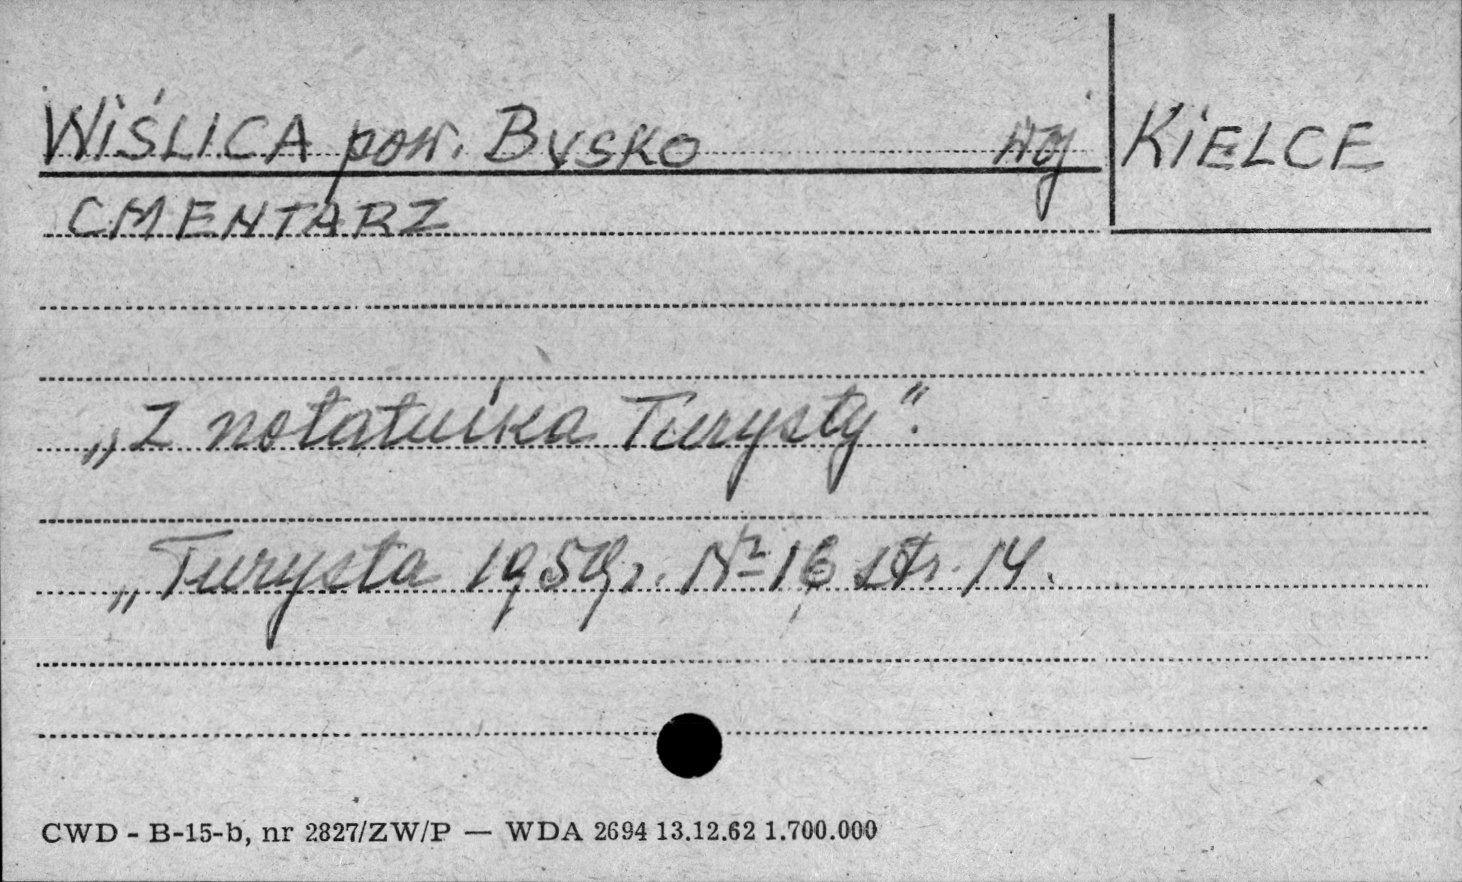 WIŚLICA pow. BUSKO woj KIELCE
CMENTARZ
„Z notatnika Turysty".
„Turysta 1959 r. № 16 str. 14.
CWD - B-15-b, nr 2827/ZW/P — WDA 2694 13.12.62 1.700.000